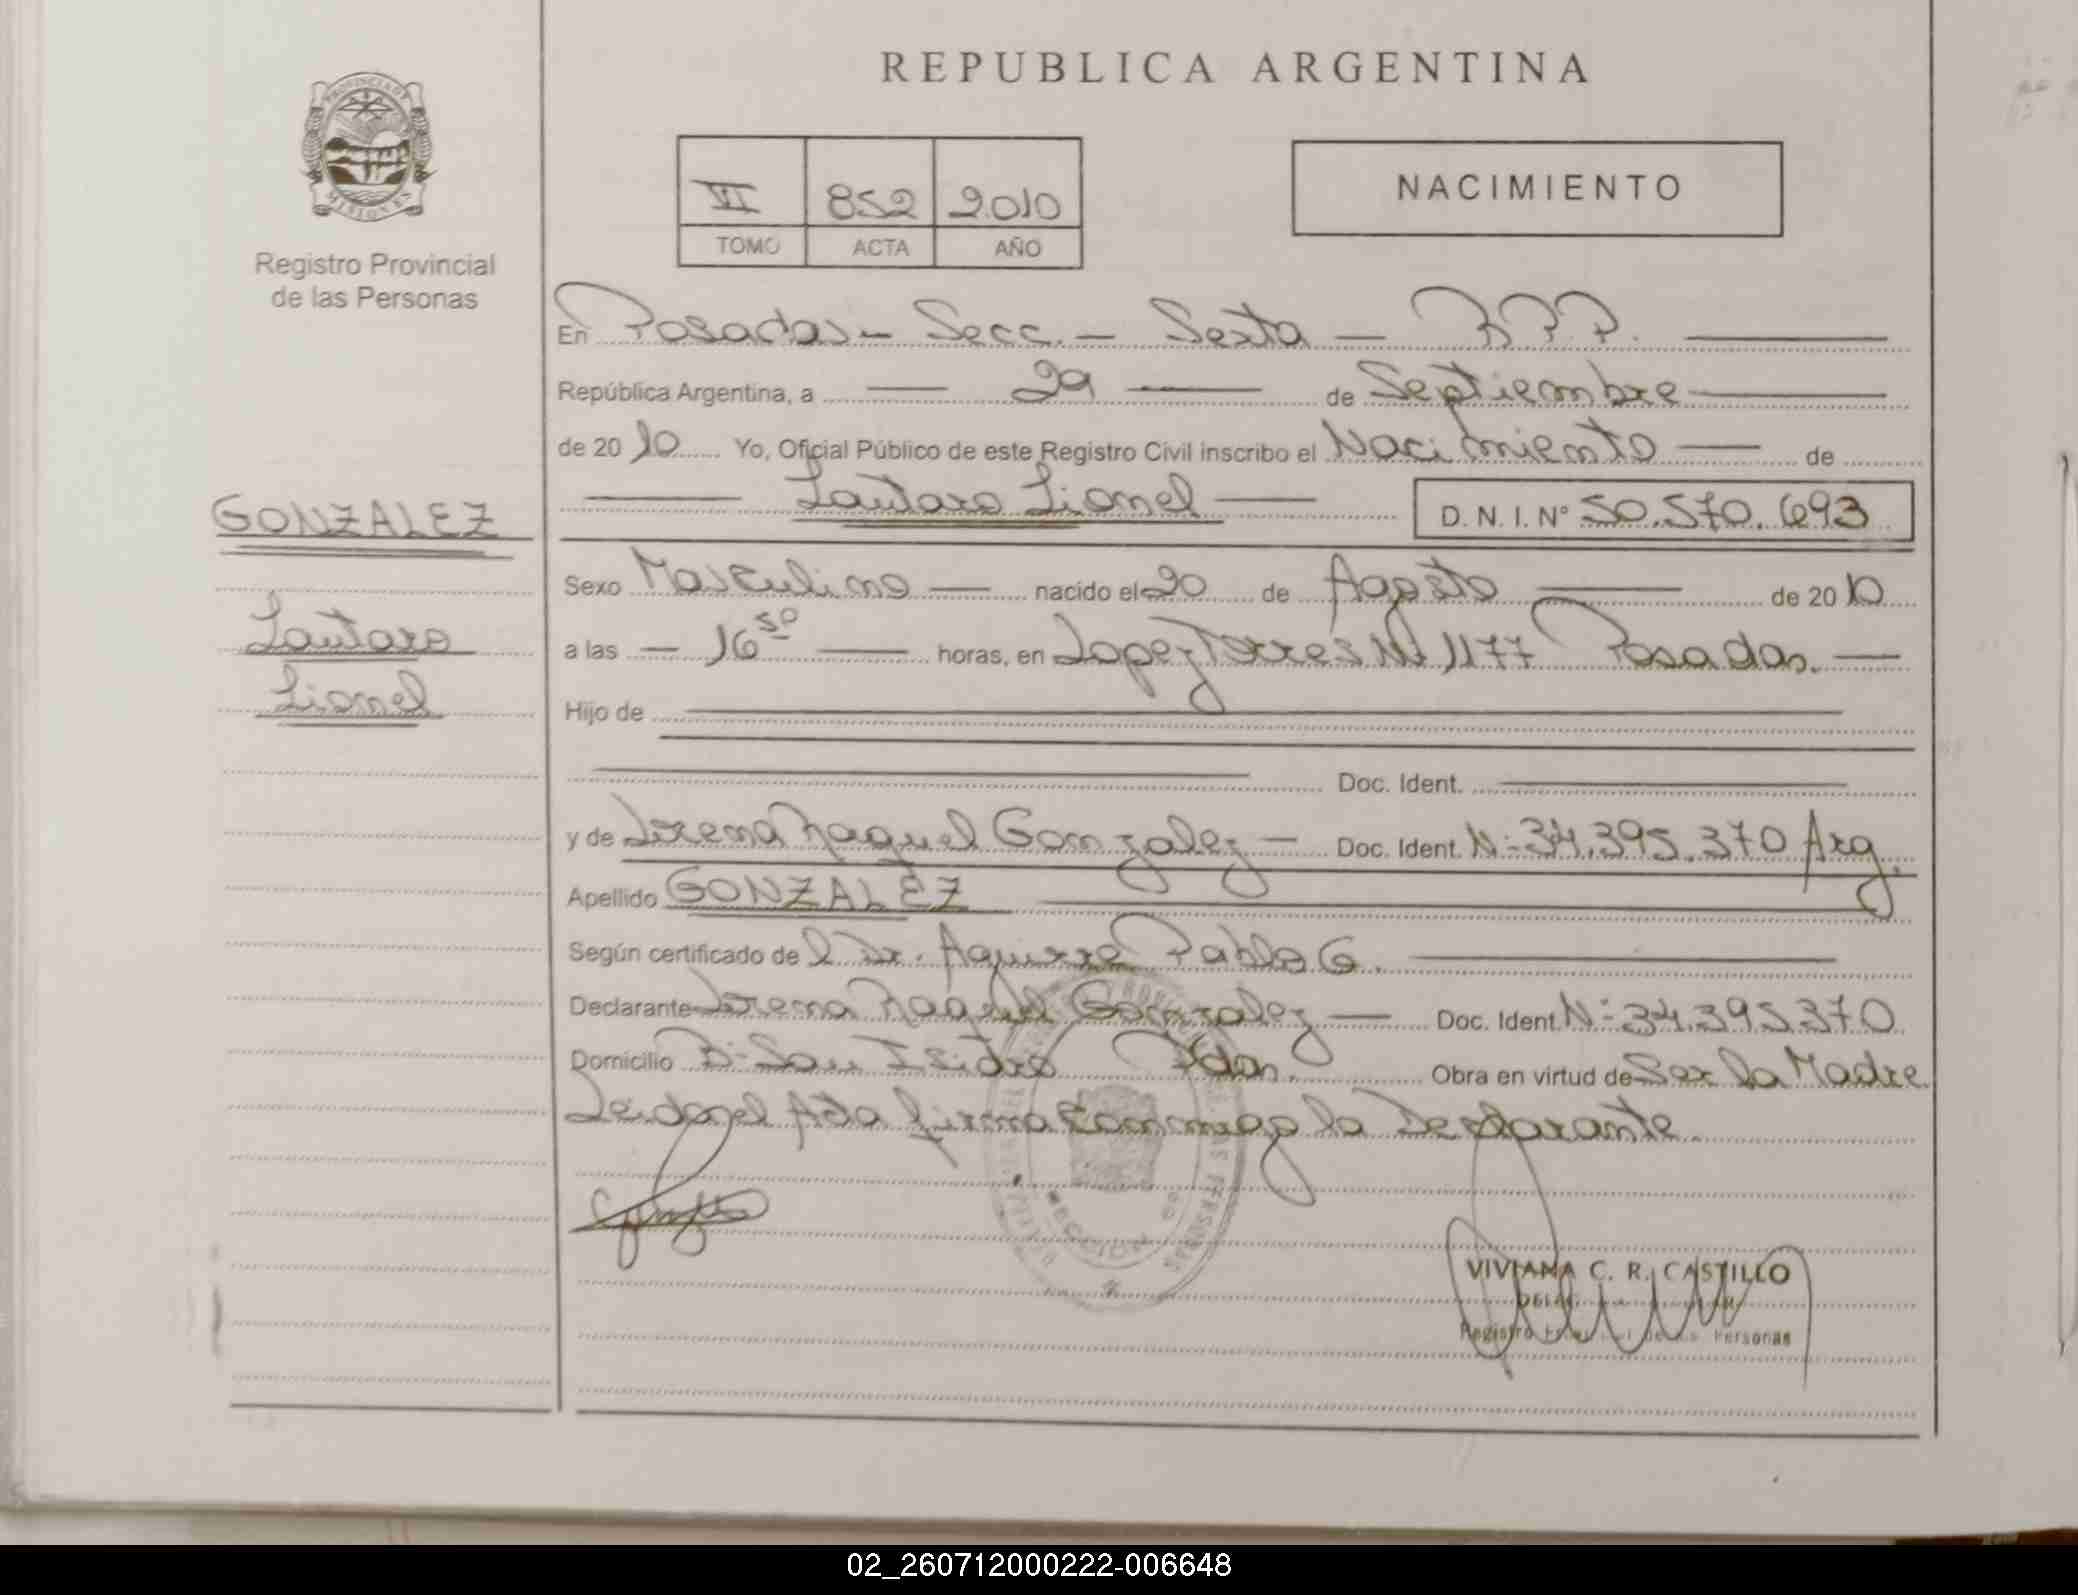 REPUBLICA ARGENTINA
PROVINCIA DE
MISIONES
Registro Provincial
de las Personas
VI 852 2010
TOMO ACTA AÑO
NACIMIENTO
En Posadas - Secc. - Sexta - R.P.P.
República Argentina, a 29 de Septiembre
de 20 10 Yo, Oficial Público de este Registro Civil inscribo el Nacimiento de
Lautaro Lionel D. N. I. N° 50.570.693
GONZALEZ
Lautaro
Lionel
Sexo Masculino nacido el 20 de Agosto de 20 10
a las 16 50 horas, en Lopez Torres Nº 1177 Posadas.
Hijo de
Doc. Ident.
y de Lorena Raquel Gonzalez Doc. Ident. N: 34.395.370 Arg.
Apellido GONZALEZ
Según certificado de l Dr. Aguirre Pablo G.
Declarante Lorena Raquel Gonzalez Doc. Ident. N: 34.395.370
Domicilio Bº San Isidro Pdas. Obra en virtud de Ser la Madre
Leida el Acta firma conmigo la Declarante.
VIVIANA C. R. CASTILLO
Registro de las Personas
02_260712000222-006648